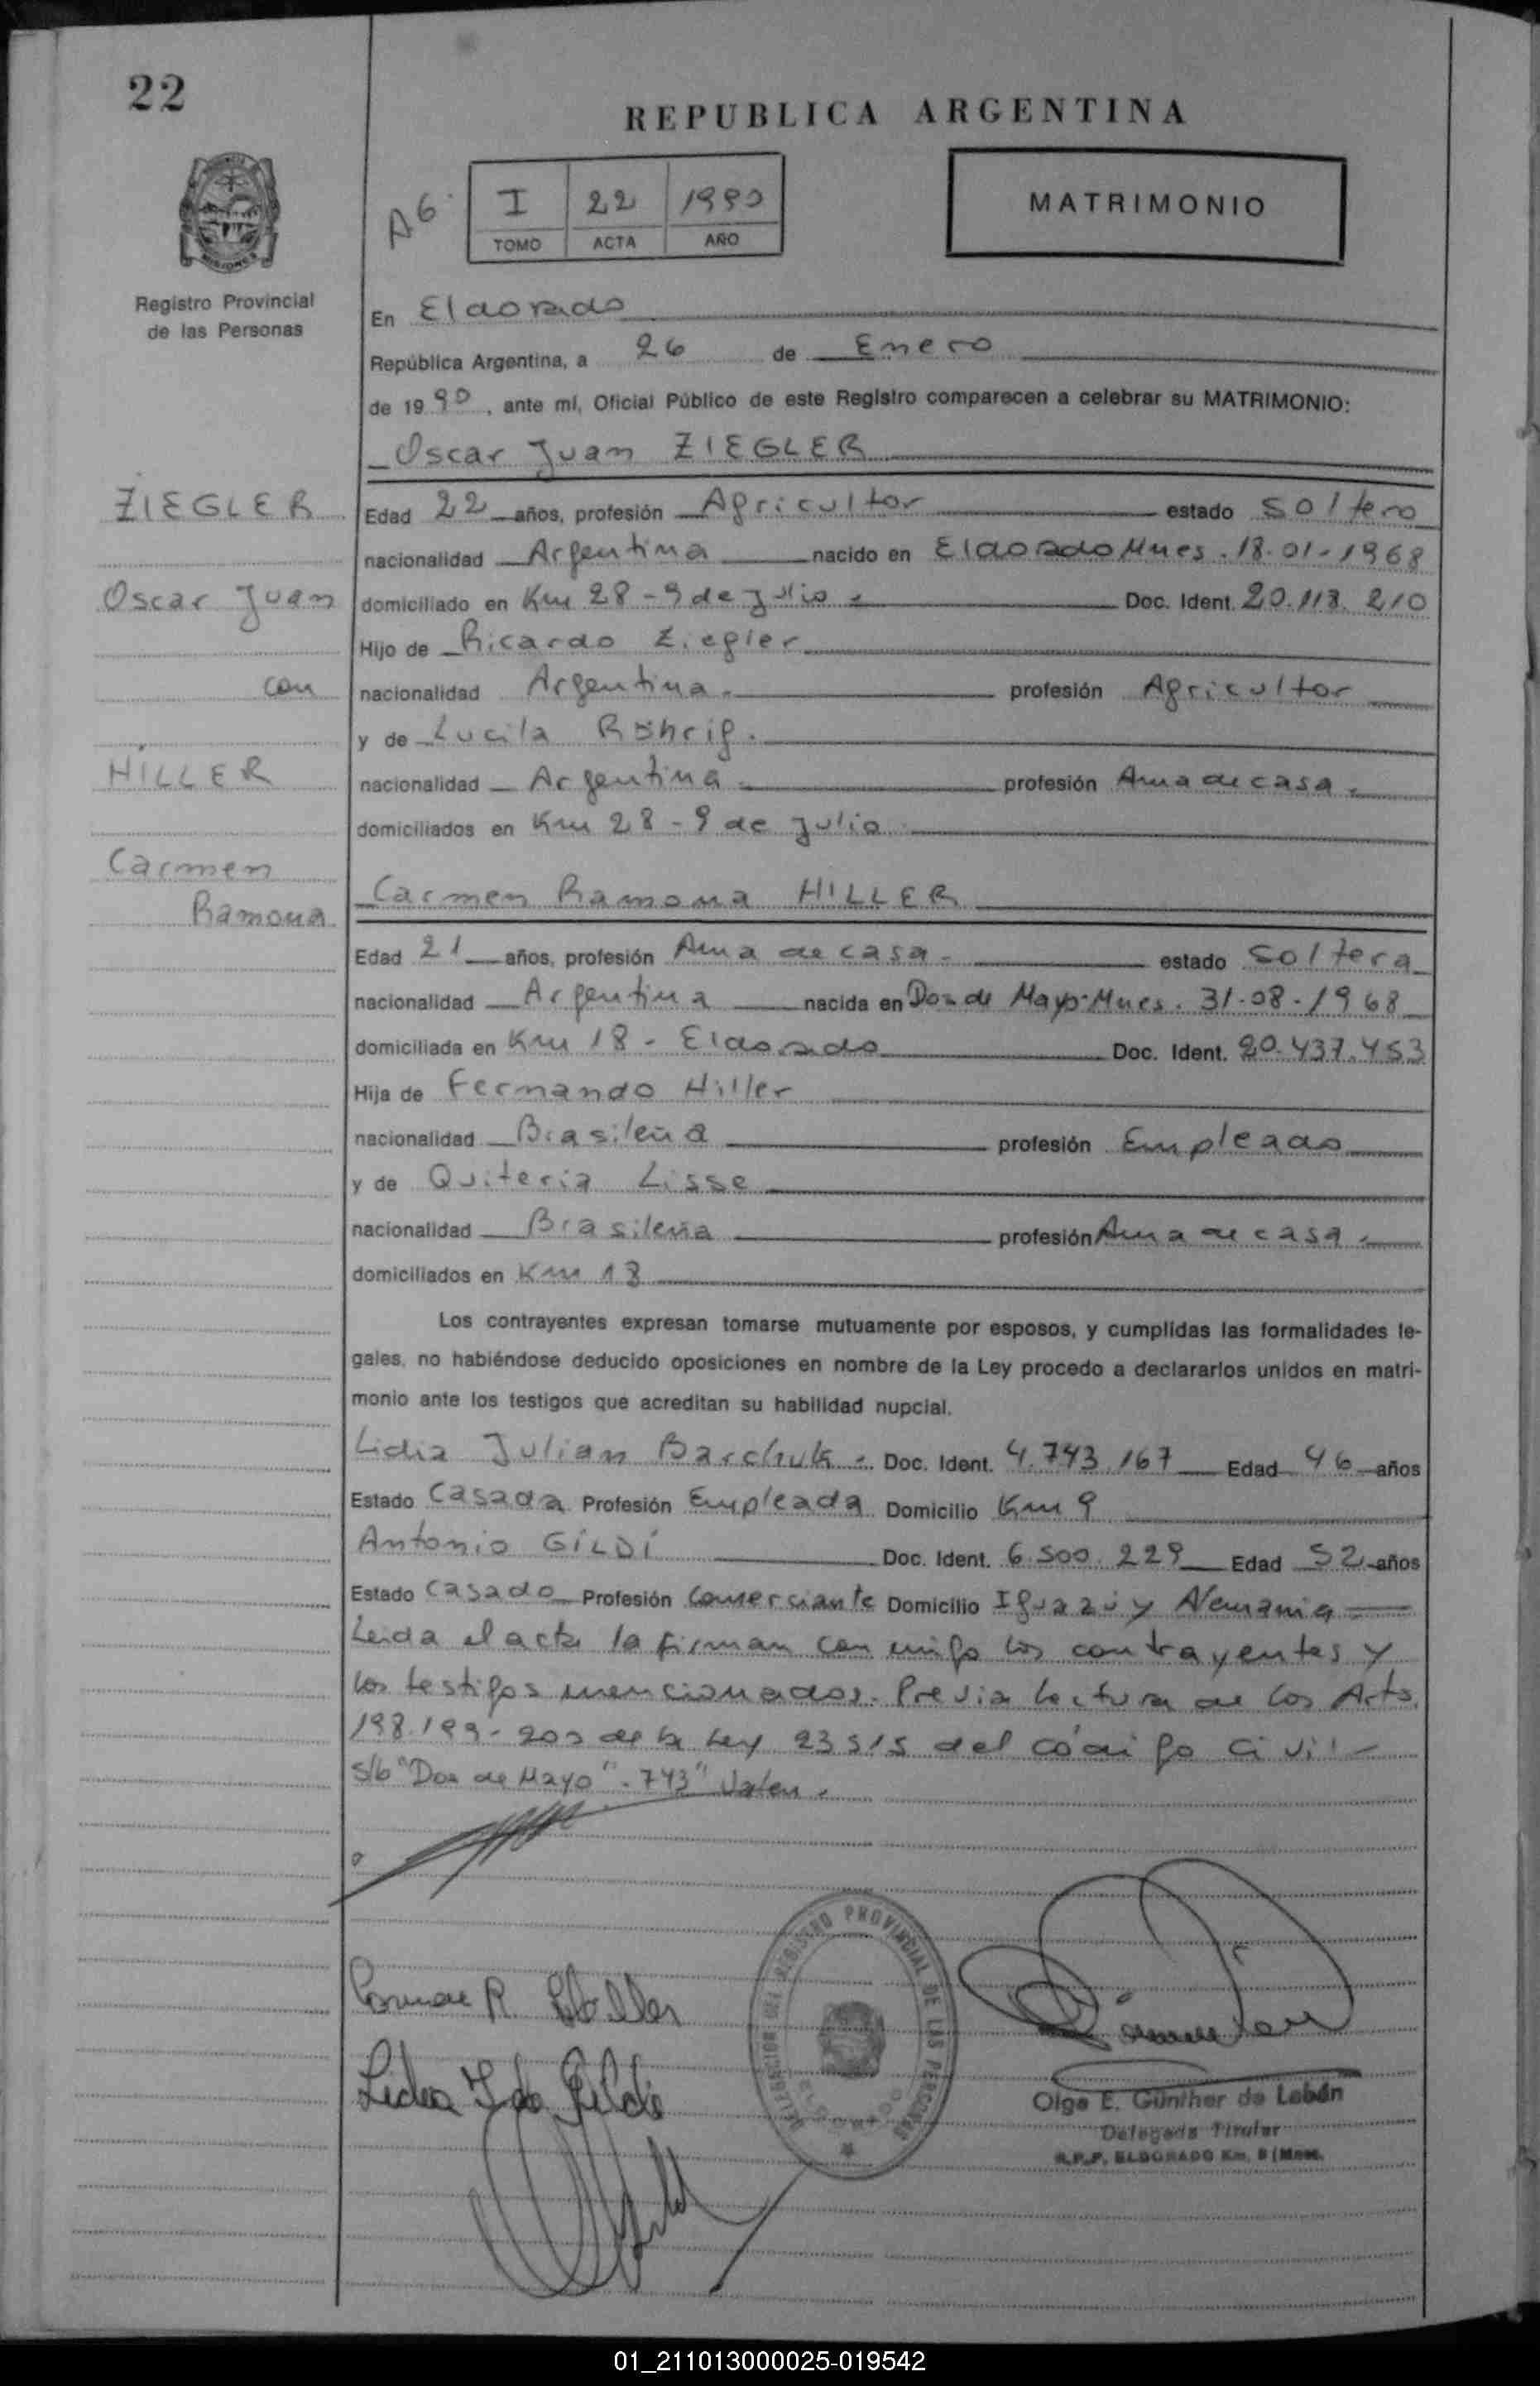 22
REPUBLICA ARGENTINA
A6
I 22 1990
TOMO ACTA AÑO
MATRIMONIO
Registro Provincial
de las Personas
En Eldorado
República Argentina, a 26 de Enero
de 1990, ante mí, Oficial Público de este Registro comparecen a celebrar su MATRIMONIO:
Oscar Juan ZIEGLER
ZIEGLER
Edad 22 años, profesión Agricultor estado Soltero
nacionalidad Argentina nacido en Eldorado Mnes. 18-01-1968
Oscar Juan
domiciliado en Km 28 - 9 de Julio - Doc. Ident. 20.118.210
Hijo de Ricardo Ziegler
con
nacionalidad Argentina. profesión Agricultor
y de Lucila Röhrig.
HILLER
nacionalidad Argentina profesión Ama de casa.
domiciliados en Km 28 - 9 de Julio
Carmen
Ramona
Carmen Ramona HILLER
Edad 21 años, profesión Ama de casa - estado Soltera
nacionalidad Argentina nacida en Dos de Mayo-Mnes. 31-08-1968
domiciliada en Km 18 - Eldorado Doc. Ident. 20.437.453
Hija de Fernando Hiller
nacionalidad Brasileña profesión Empleado
y de Quiteria Lisse
nacionalidad Brasileña profesión Ama de casa.
domiciliados en Km 18
Los contrayentes expresan tomarse mutuamente por esposos, y cumplidas las formalidades le-
gales, no habiéndose deducido oposiciones en nombre de la Ley procedo a declararlos unidos en matri-
monio ante los testigos que acreditan su habilidad nupcial.
Lidia Julian Barchuk - Doc. Ident. 4.743.167 Edad 46 años
Estado Casada Profesión Empleada Domicilio Km 9
Antonio GILDI Doc. Ident. 6.500.229 Edad 52 años
Estado Casado Profesión Comerciante Domicilio Iguazú y Alemania
Leida el acta la firman con migo los contrayentes y
los testigos mencionados. Previa lectura de los Arts.
198.199-200 de la Ley 23515 del código civil -
S/b "Dos de Mayo" - 743" Valen.
Carmen R. Hiller
Lidia J. de Gildi
DELEGACION DEL REGISTRO PROVINCIAL DE LAS PERSONAS
Olga E. Günther de Labán
Delegada Titular
R.P.P. ELDORADO Km. 9 (Mnes.
01_211013000025-019542